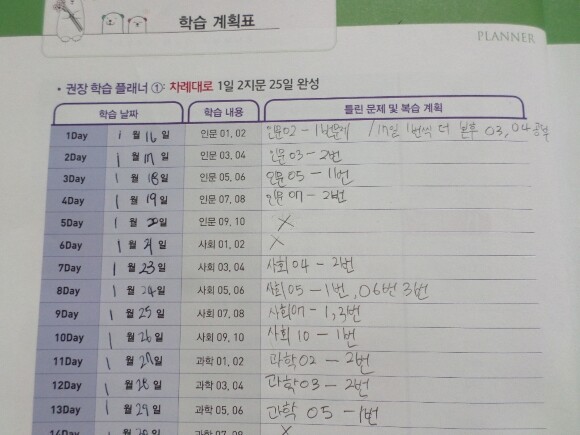 학습 계획표
PLANNER
• 권장 학습 플래너 ①: 차례대로 1일 2지문 25일 완성
학습 날짜 학습 내용 틀린 문제 및 복습 계획
1Day 1 월 16 일 인문 01, 02 인문02 - 1번문제 /17일 1번씩 더 본후 03, 04 공부
2Day 1 월 17 일 인문 03, 04 인문03 - 2번
3Day 1 월 18 일 인문 05, 06 인문 05 - 11번
4Day 1 월 19 일 인문 07, 08 인문 07 - 2번
5Day 1 월 20 일 인문 09, 10 X
6Day 1 월 21 일 사회 01, 02 X
7Day 1 월 23 일 사회 03, 04 사회 04 - 2번
8Day 1 월 24 일 사회 05, 06 사회05 - 1번, 06번 3번
9Day 1 월 25 일 사회 07, 08 사회07 - 1, 3번
10Day 1 월 26 일 사회 09, 10 사회 10 - 1번
11Day 1 월 27 일 과학 01, 02 과학02 - 2번
12Day 1 월 28 일 과학 03, 04 과학03 - 2번
13Day 1 월 29 일 과학 05, 06 과학 05 - 1번
14Day 1 월 30 일 과학 07, 08 X